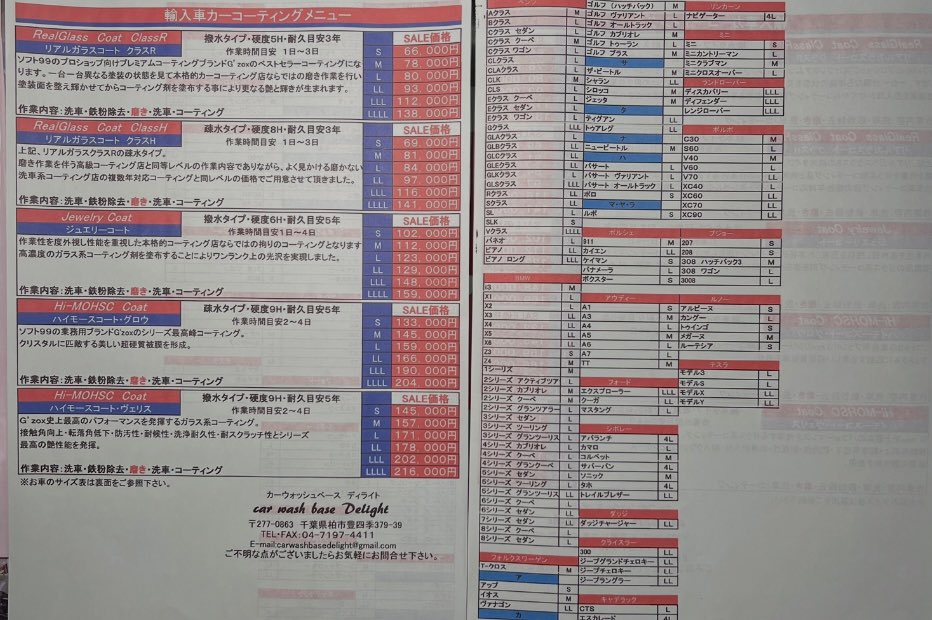 輸入車カーコーティングメニュー
RealGlass Coat ClassR
リアルガラスコート クラスR
撥水タイプ・硬度5H・耐久目安3年
作業時間目安 1日〜3日
SALE価格
S 66,000円
ソフト99のプロショップ向けプレミアムコーティングブランドG'zoxのベストセラーコーティングにな
M 78,000円
ります。一台一台異なる塗装の状態を見て本格的カーコーティング店ならではの磨き作業を行い
L 80,000円
塗装面を整え輝かせてからコーティング剤を塗布する事により更なる艶と輝きが生まれます。
LL 93,000円
LLL 112,000円
作業内容:洗車・鉄粉除去・磨き・洗車・コーティング
LLLL 138,000円
RealGlass Coat ClassH
リアルガラスコート クラスH
疎水タイプ・硬度8H・耐久目安3年
作業時間目安 1日〜3日
SALE価格
S 69,000円
上記、リアルガラスクラスRの疎水タイプ。
M 81,000円
磨き作業を伴う高級コーティング店と同等レベルの作業内容でありながら、よく見かける磨かない
L 84,000円
洗車系コーティング店の複数年対応コーティングと同レベルの価格でご用意させて頂きました。
LL 97,000円
LLL 116,000円
作業内容:洗車・鉄粉除去・磨き・洗車・コーティング
LLLL 141,000円
Jewelry Coat
ジュエリーコート
撥水タイプ・硬度6H・耐久目安5年
作業時間目安 1日〜4日
SALE価格
S 102,000円
作業性を度外視し性能を重視した本格的コーティング店ならではの拘りのコーティングとなります
M 112,000円
高濃度のガラス系コーティング剤を塗布することによりワンランク上の光沢を実現しました。
L 123,000円
LL 129,000円
LLL 148,000円
作業内容:洗車・鉄粉除去・磨き・洗車・コーティング
LLLL 159,000円
Hi-MOHSC Coat
ハイモースコート・グロウ
疎水タイプ・硬度9H・耐久目安5年
作業時間目安2〜4日
SALE価格
S 133,000円
ソフト99の業務用ブランドG'zoxのシリーズ最高峰コーティング。
M 145,000円
クリスタルに匹敵する美しい超硬質被膜を形成。
L 159,000円
LL 166,000円
LLL 190,000円
作業内容:洗車・鉄粉除去・磨き・洗車・コーティング
LLLL 204,000円
Hi-MOHSC Coat
ハイモースコート・ヴェリス
撥水タイプ・硬度9H・耐久目安5年
作業時間目安2〜4日
SALE価格
S 145,000円
G'zox史上最高のパフォーマンスを発揮するガラス系コーティング。
M 157,000円
接触角向上・転落角低下・防汚性・耐候性・洗浄耐久性・耐スクラッチ性とシリーズ
L 171,000円
最高の艶性能を発揮。
LL 178,000円
LLL 202,000円
作業内容:洗車・鉄粉除去・磨き・洗車・コーティング
LLLL 216,000円
※お車のサイズ表は裏面をご参照下さい。
カーウォッシュベース ディライト
car wash base Delight
〒277-0863 千葉県柏市豊四季379-39
TEL・FAX:04-7197-4411
E-mail:carwashbasedelight@gmail.com
ご不明な点がございましたらお気軽にお問合せ下さい。
Aクラス M
Bクラス L
Cクラス セダン L
Cクラス クーペ M
Cクラス ワゴン L
CLクラス L
CLAクラス L
CLK M
CLS L
Eクラス クーペ
Eクラス セダン L
Eクラス ワゴン
Gクラス LLL
GLAクラス L
GLBクラス
GLCクラス
GLEクラス
GLKクラス
GLSクラス LLL
Rクラス
Sクラス
SL L
SLK S
Vクラス LLLL
バネオ L
ビアノ LL
ビアノ ロング LLL
BMW
i3 M
X1 L
X2 L
X3
X4
X5
X6
Z3 S
Z4 M
1シリーズ M
2シリーズ アクティブツア
2シリーズ カブリオレ
2シリーズ クーペ
2シリーズ グランツアラー
3シリーズ セダン
3シリーズ ツーリング
3シリーズ グランツーリス
4シリーズ カブリオレ
4シリーズ クーペ
4シリーズ グランクーペ
5シリーズ セダン
5シリーズ ツーリング
5シリーズ グランツーリス
6シリーズ クーペ
6シリーズ セダン
7シリーズ セダン
8シリーズ クーペ
8シリーズ セダン
フォルクスワーゲン
T-クロス M
ア
アップ S
イオス M
ヴァナゴン LL
カ
ゴルフ (ハッチバック) M
ゴルフ ヴァリアント L
ゴルフ オールトラック L
ゴルフ カブリオレ M
ゴルフ トゥーラン L
ゴルフ プラス M
サ
ザ・ビートル M
シャラン LL
シロッコ M
ジェッタ M
タ
ティグアン L
トゥアレグ LL
ナ
ニュービートル M
ハ
パサート L
パサート ヴァリアント L
パサート オールトラック L
ポロ S
マ・ヤ・ラ
ルポ S
ポルシェ
911 M
カイエン LL
ケイマン S
パナメーラ L
ボクスター S
アウディー
A1 S
A3 M
A4 L
A5 L
A6 L
A7 L
TT M
フォード
エクスプローラー LLL
クーガ LL
マスタング L
シボレー
アバランチ 4L
カマロ L
コルベット M
サバーバン 4L
ソニック M
タホ 4L
トレイルブレザー LL
ダッジ
ダッジチャージャー LL
クライスラー
300 LL
ジープグランドチェロキー LL
ジープチェロキー LL
ジープラングラー LL
キャデラック
CTS L
エスカレード 4L
リンカーン
ナビゲーター 4L
ミニ
ミニ S
ミニカントリーマン L
ミニクラブマン M
ミニクロスオーバー L
ランドローバー
ディスカバリー LLL
ディフェンダー LLL
レンジローバー LLL
ボルボ
C30 M
S60 L
V40 M
V60 L
V70 LL
XC40 L
XC60 LL
XC70 LL
XC90 LL
プジョー
207 S
208 S
308 ハッチバック3 M
308 ワゴン L
3008 L
ルノー
アルピーヌ S
カングー L
トゥインゴ S
メガーヌ M
ルーテシア S
テスラ
モデル3 L
モデルS L
モデルX LL
モデルY LL